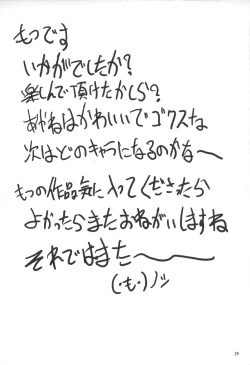 もつです
いかがでしたか?
楽しんで頂けたかしら?
あかねはかわいいでゴクスな
次はどのキャラになるのかな〜
もつの作品気に入ってくださったら
よかったらまたおねがいしますね
それではまた〜〜
(・も・)ノシ